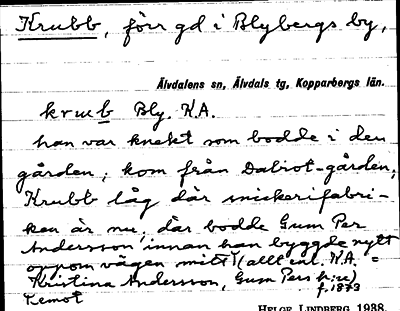 Krubb, förr gd i Blybergs by,
Älvdalens sn, Älvdals tg, Kopparbergs län.
krub Bly. K.A.
han var knekt som bodde i den
gården; kom från Dabrot-gården;
Krubb låg där snickerifabri-
ken är nu, där bodde Gum Per
Andersson innan han byggde nytt
oppom vägen mitt (allt enl. K.A. =
Kristina Andersson, Gum Pers h:u)
f. 1873
HELGE LINDBERG 1938.